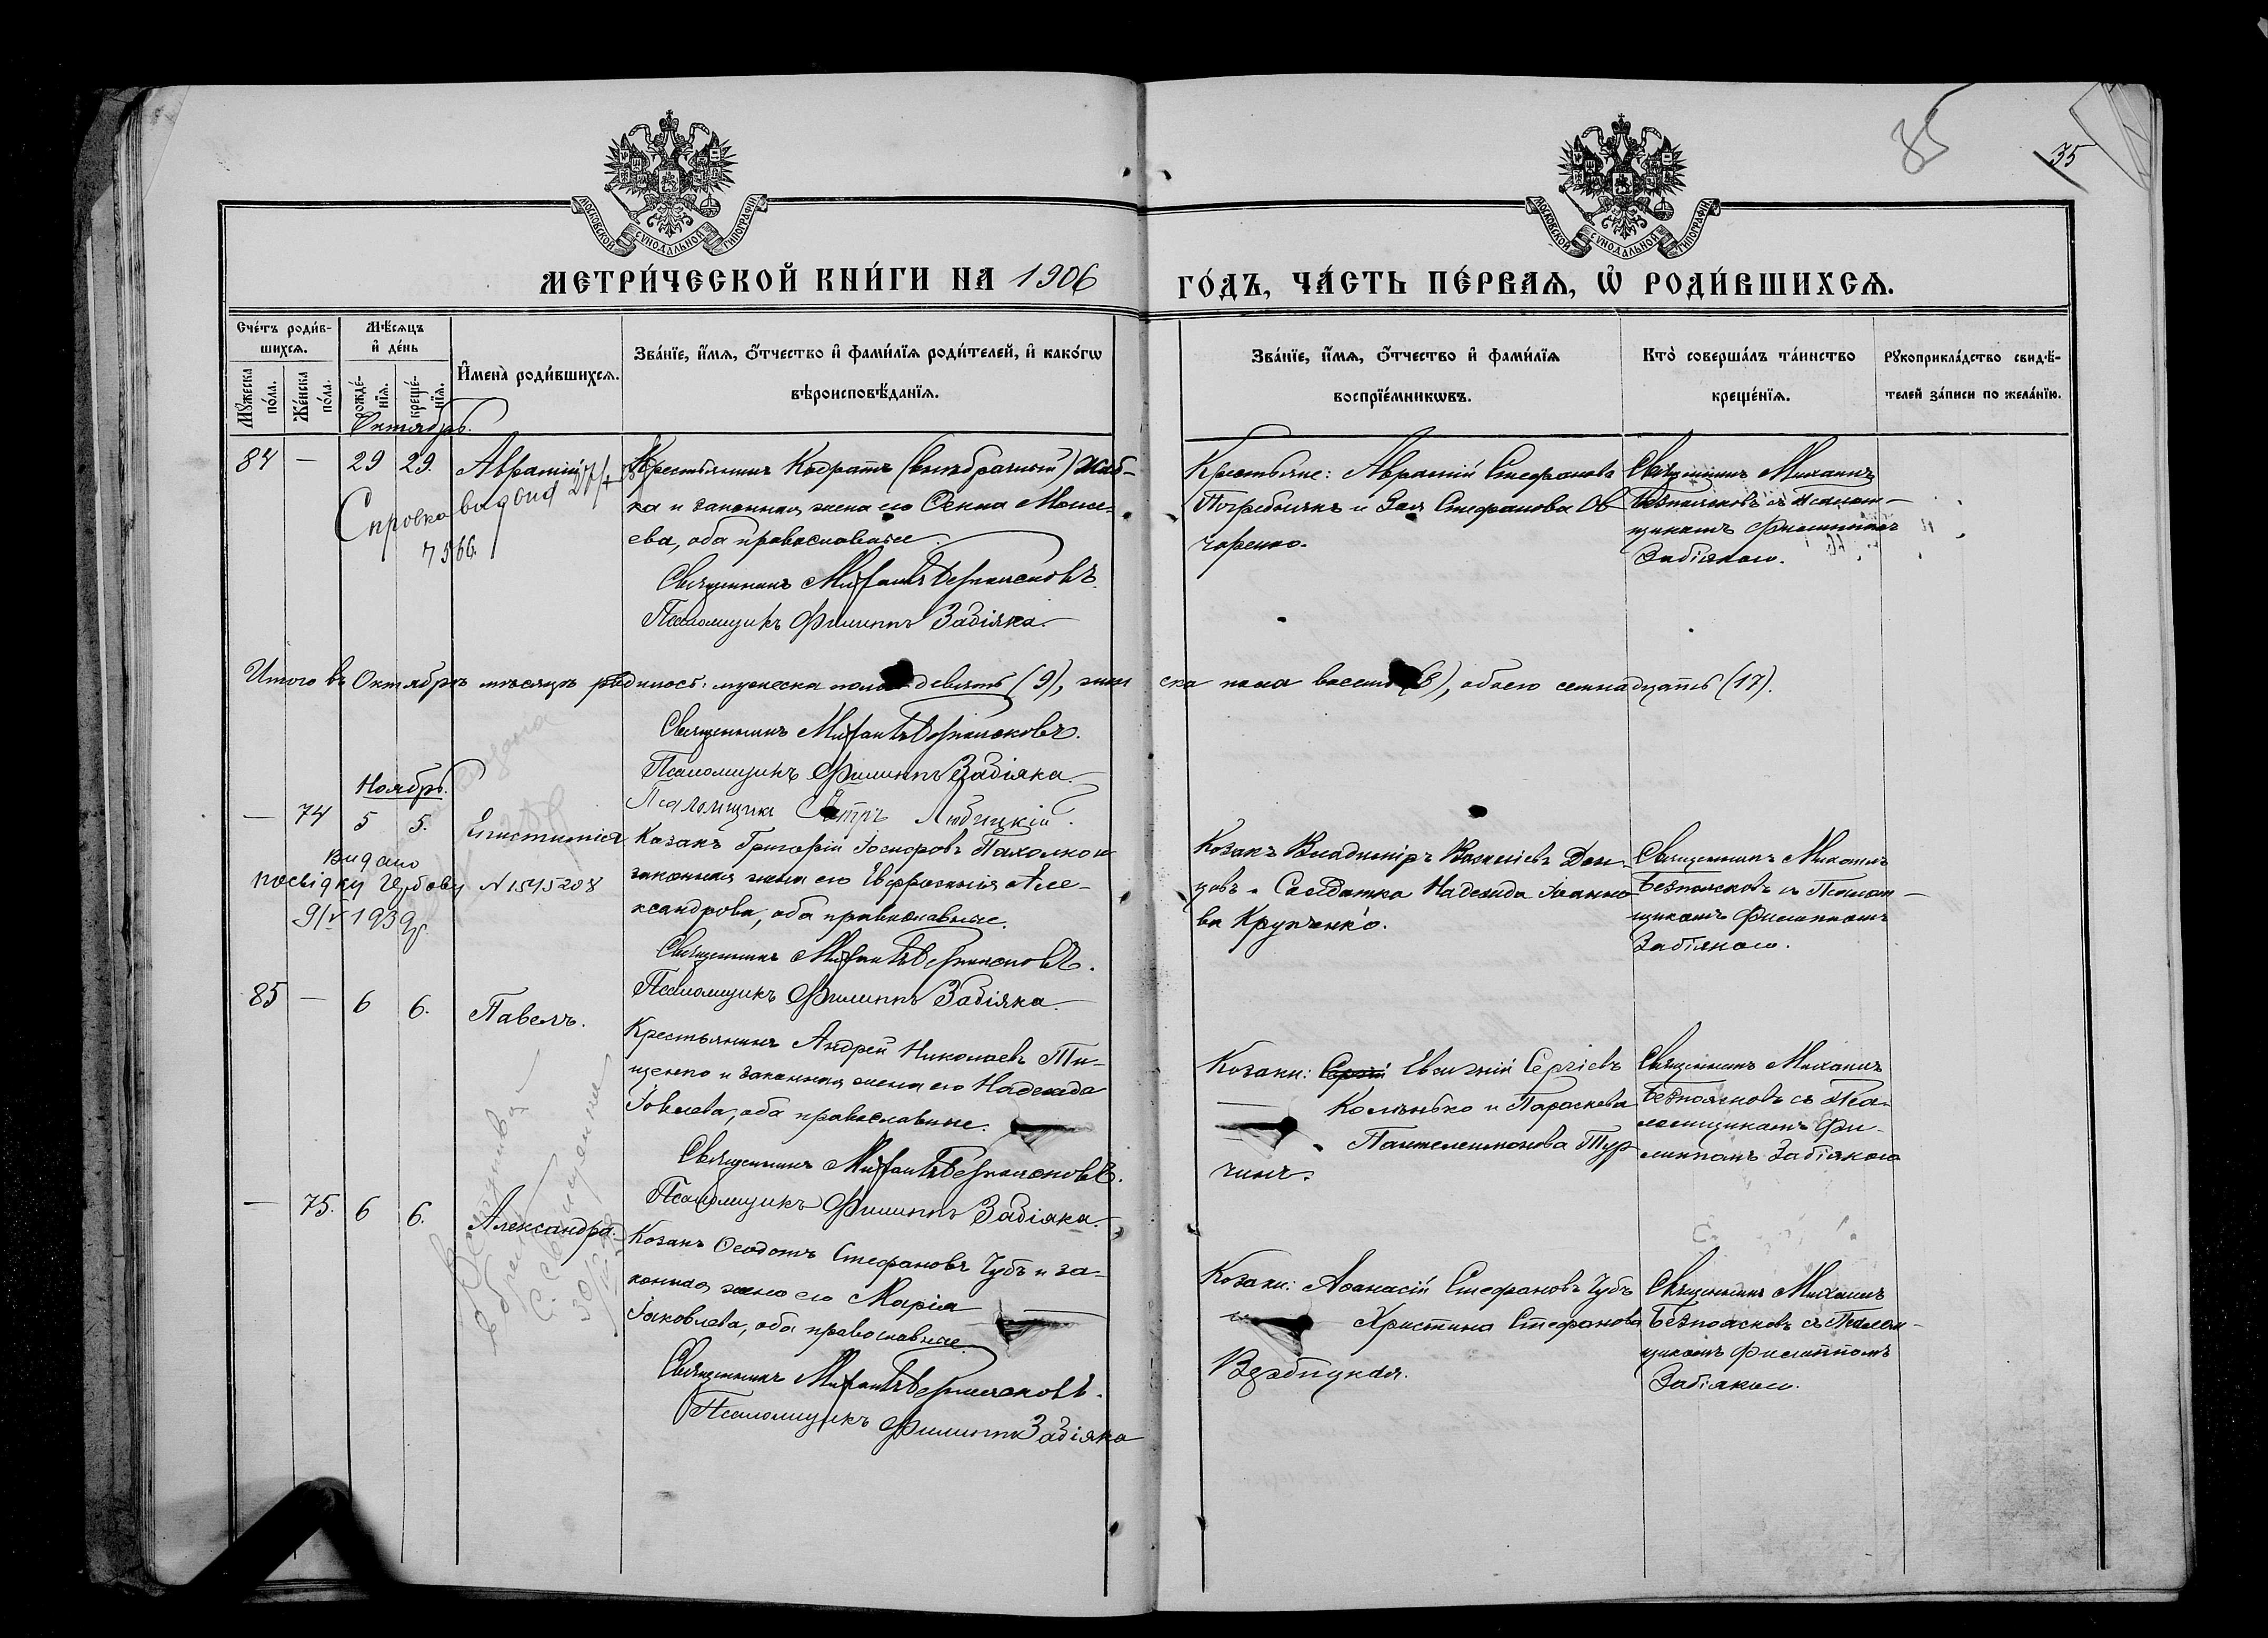 35
35
МОСКОВСКОЙ СУНОДАЛЬНОЙ ТИПОГРАФІИ
МОСКОВСКОЙ СУНОДАЛЬНОЙ ТИПОГРАФІИ
МЕТРИ́ЧЕСКОЙ КНИ́ГИ НА 1906
ГО́ДЪ, ЧА́СТЬ ПЕ́РВАѦ, Ѡ҆ РОДИ́ВШИХСѦ.
Сче́тъ роди́в-
шихсѧ.
Мꙋ́жеска по́ла.
Же́нска по́ла.
Мѣ́сяцъ
и҆ де́нь
рожде́-
нїѧ.
креще́-
нїѧ.
И҆мена̀ роди́вшихсѧ.
Зва́нїе, и҆́мѧ, ѻ҆́тчество и҆ фами́лїѧ роди́телей, и҆ како́гѡ
вѣроисповѣ́данїѧ.
Зва́нїе, и҆́мѧ, ѻ҆́тчество и҆ фами́лїѧ
воспрїе́мникѡвъ.
Кто̀ соверша́лъ та́инство
креще́нїѧ.
Рꙋкоприкла́дство свидѣ́-
телей за́писи по жела́нїю.
Октябрь.
84 — 29 29. Аврамій
Справка видана
7566
Крестьянинъ Кодратъ (внѣбрачный) Жаб-
ка и законная жена его Ѳекла Моисе-
ева, оба православные.
Священникъ Михаилъ Безпоясковъ.
Псаломщикъ Филиппъ Забіяка.
Крестьяне: Аврамій Стефановъ
Погребнякъ и Зоя Стефанова Ов
чаренко.
Священникъ Михаилъ
Безпоясковъ съ Псалом-
щикомъ Филиппомъ
Забіякою.
Итого въ Октябрѣ мѣсяцѣ родилось: мужеска пола девять (9), жен
ска пола восемь (8), обоего семнадцать (17).
Священникъ Михаилъ Безпоясковъ.
Псаломщикъ Филиппъ Забіяка.
Псаломщикъ Петръ Любицкій.
Ноябрь.
— 74 5 5. Епистимія
Видано
посвідку Чубову N 1545208
9/V 1939 р.
Козакъ Григорій Іосифовъ Пахолко и
законная жена его Евфросинія Але-
ксандрова, оба православные.
Священникъ Михаилъ Безпоясковъ.
Псаломщикъ Филиппъ Забіяка.
Козакъ Владиміръ Василіевъ Дон-
цовъ и Солдатка Надежда Іоанно
ва Крупенко.
Священникъ Михаилъ
Безпоясковъ съ Псалом-
щикомъ Филиппомъ
Забіякою.
85 — 6 6. Павелъ.
Крестьянинъ Андрей Николаевъ Ти-
щенко и законная жена его Надежда
Іовлева, оба православные.
Священникъ Михаилъ Безпоясковъ.
Псаломщикъ Филиппъ Забіяка.
Козаки: Сергій Евгеній Сергіевъ
Колѣнько и Параскева
Пантелеимонова Тур
чинъ.
Священникъ Михаилъ
Безпоясковъ съ Пса-
ломщикомъ Фи-
липпомъ Забіякою
— 75. 6 6. Александра.
Козакъ Ѳеодотъ Стефановъ Чубъ и за-
конная жена его Марія
Іаковлева, оба православные.
Священникъ Михаилъ Безпоясковъ.
Псаломщикъ Филиппъ Забіяка
Козаки: Аѳанасій Стефановъ Чубъ
и Христина Стефанова
Вербицкая.
Священникъ Михаилъ
Безпоясковъ съ Псалом-
щикомъ Филиппомъ
Забіякою.